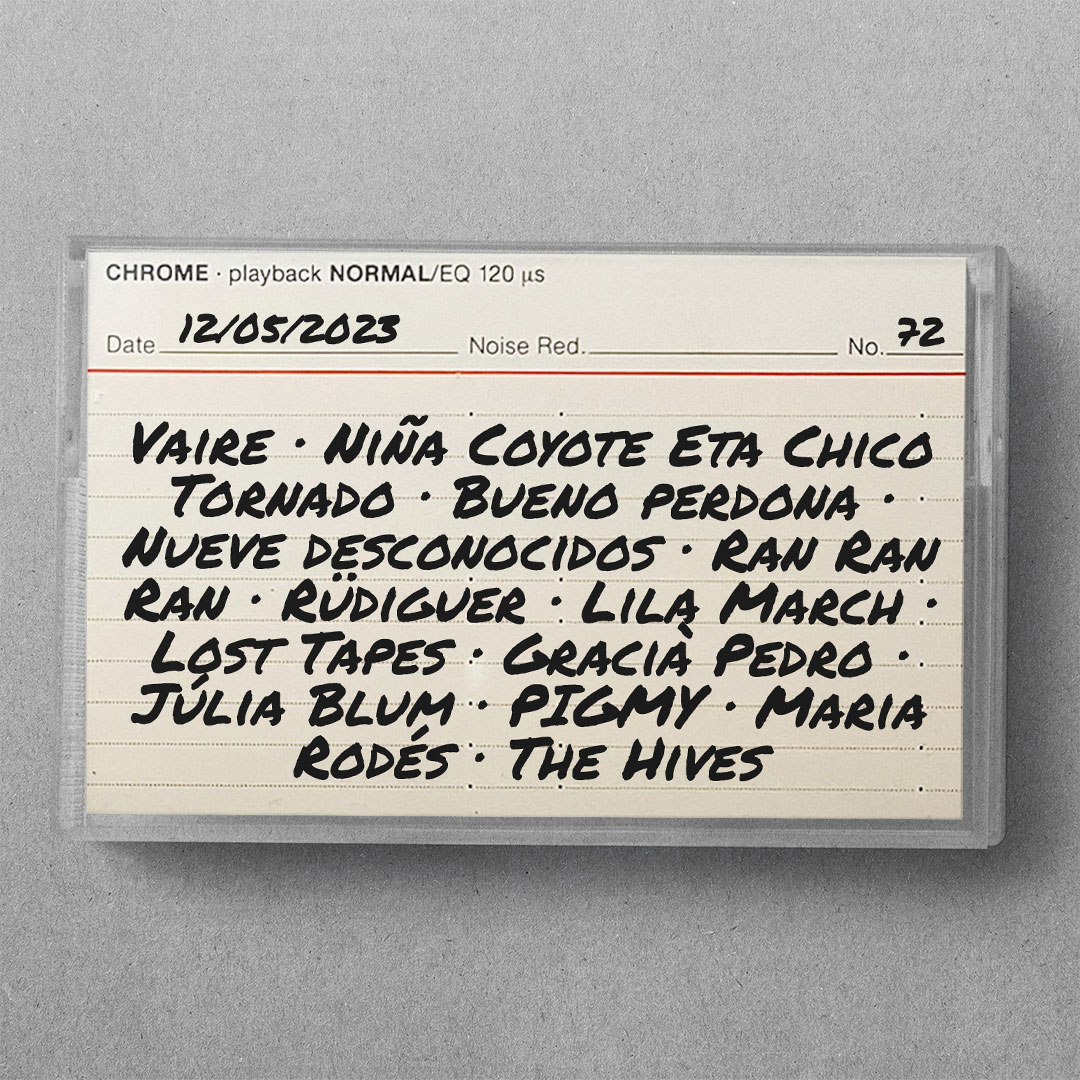 CHROME · playback NORMAL/EQ 120 µs
Date 12/05/2023 Noise Red. No. 72
VAIRE · NIÑA COYOTE ETA CHICO
TORNADO · BUENO PERDONA ·
NUEVE DESCONOCIDOS · RAN RAN
RAN · RÜDIGUER · LILA MARCH ·
LOST TAPES · GRACIÀ PEDRO ·
JÚLIA BLUM · PIGMY · MARIA
RODÉS · THE HIVES